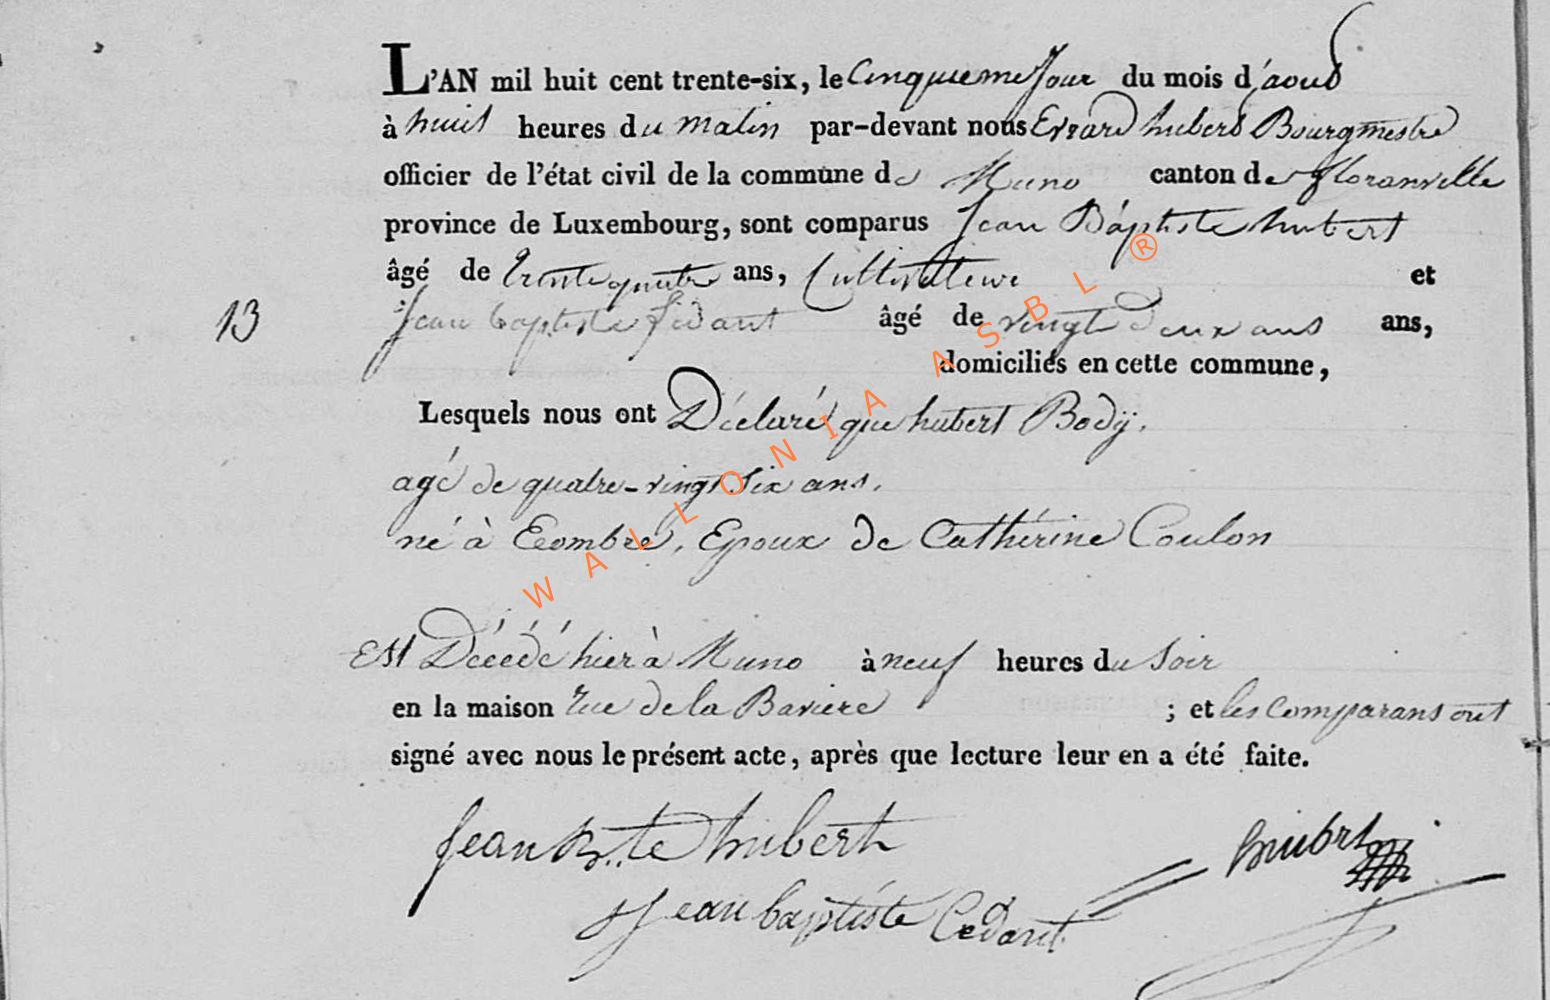 L'AN mil huit cent trente-six, le Cinquieme Jour du mois d'aout
à huit heures du matin par-devant nous Evrard hubert Bourgmestre
officier de l'état civil de la commune de Muno canton de floranville
province de Luxembourg, sont comparus Jean Baptiste hubert
âgé de trente quatre ans, Cultivateur et
13 Jean baptiste âgé de vingt deux ans ans,
domiciliés en cette commune,
Lesquels nous ont Déclaré que hubert Bodÿ,
agé de quatre-vingt six ans,
né à Epoux de Cathérine Coulon
Est Décédé hier à Muno à neuf heures du Soir
en la maison rue de la Baviere ; et les Comparans ont
signé avec nous le présent acte, après que lecture leur en a été faite.
Jean Bte hubert
hubert
Jean baptiste Cedant
WALLONIA ASBL ®